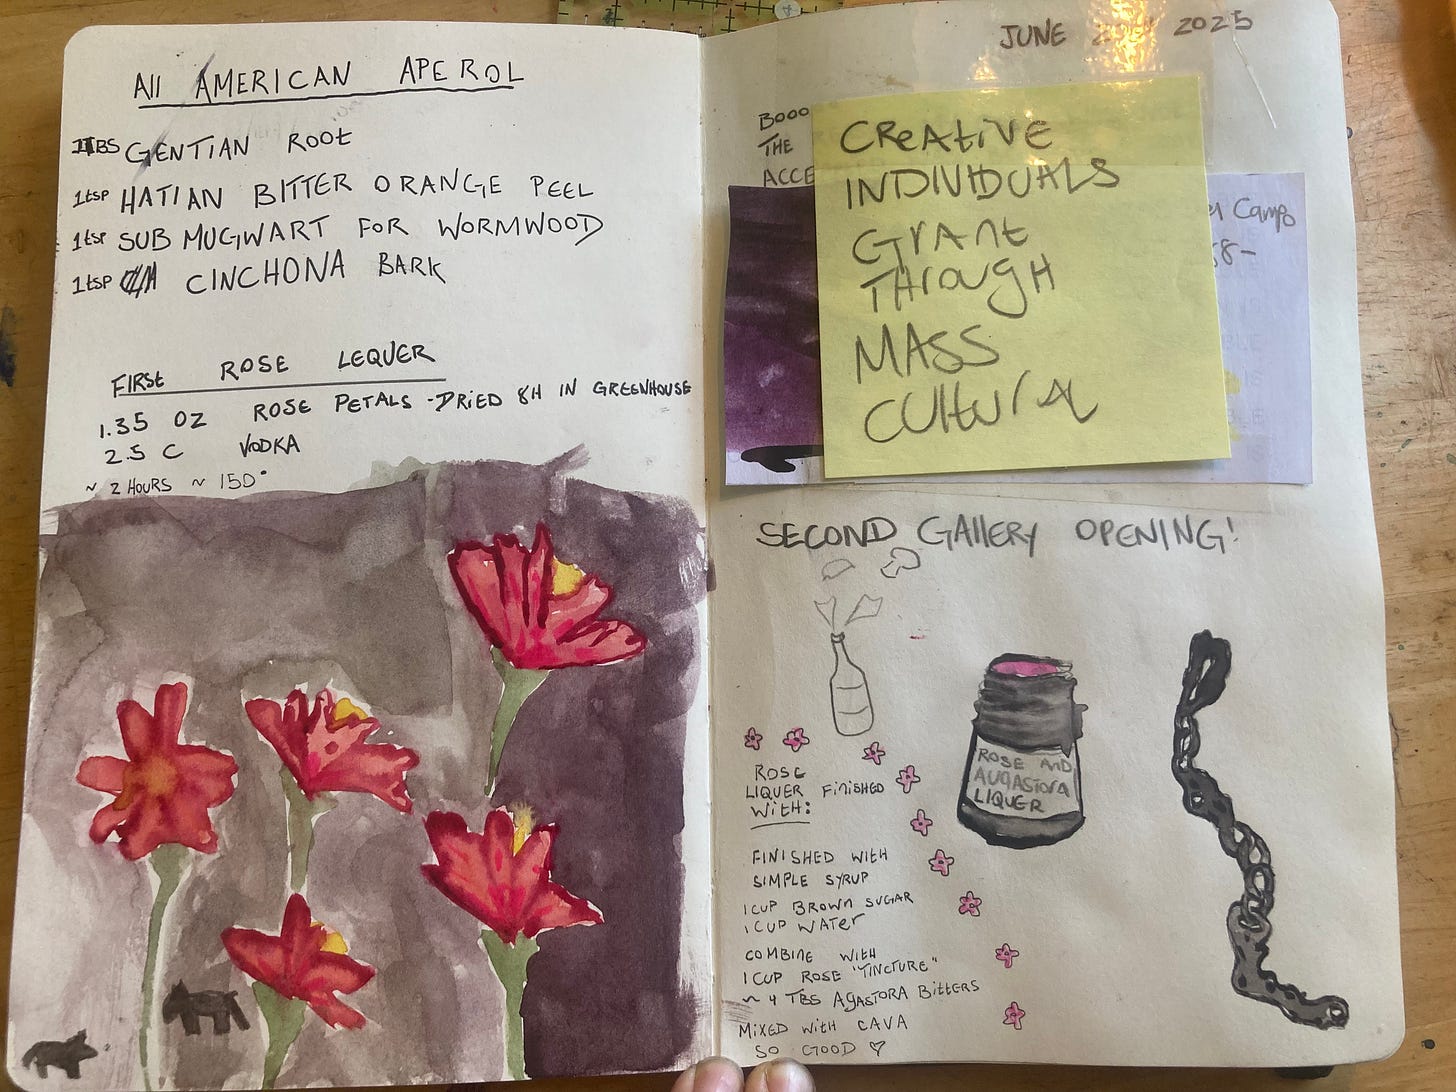 All AMERICAN APEROL
TBS GENTIAN ROOt
1tsp HATIAN BITTER ORANGE PEEL
1tsp SUB MUGWART FOR WORMWOOD
1tsp CINCHONA BARK
FIRSt ROSE LEQUER
1.35 OZ ROSE PETALS - DRIED 8H IN GREENHOUSE
2.5 C VODKA
~ 2 HOURS ~ 150°
JUNE 2025
BOOO
THE
ACCE
CREAtiVE
INDIVIDUALS
GrAnt
THrougH
MASS
CUltUrAL
Camp
58-
SECOND GAllERY OPENING!
ROSE
LIQUER FiNiSHED
WitH:
ROSE AND
AUGAStorA
LIQUER
FINISHED WitH
SIMPLE SYRUP
1 CUP BROWN SUGAR
1 CUP WAtEr
COMBINE WitH
1 CUP ROSE "TINCTURE"
~ 4 TBS AGAStORA BittERS
MiXED WitH CAVA
SO GOOD ♡